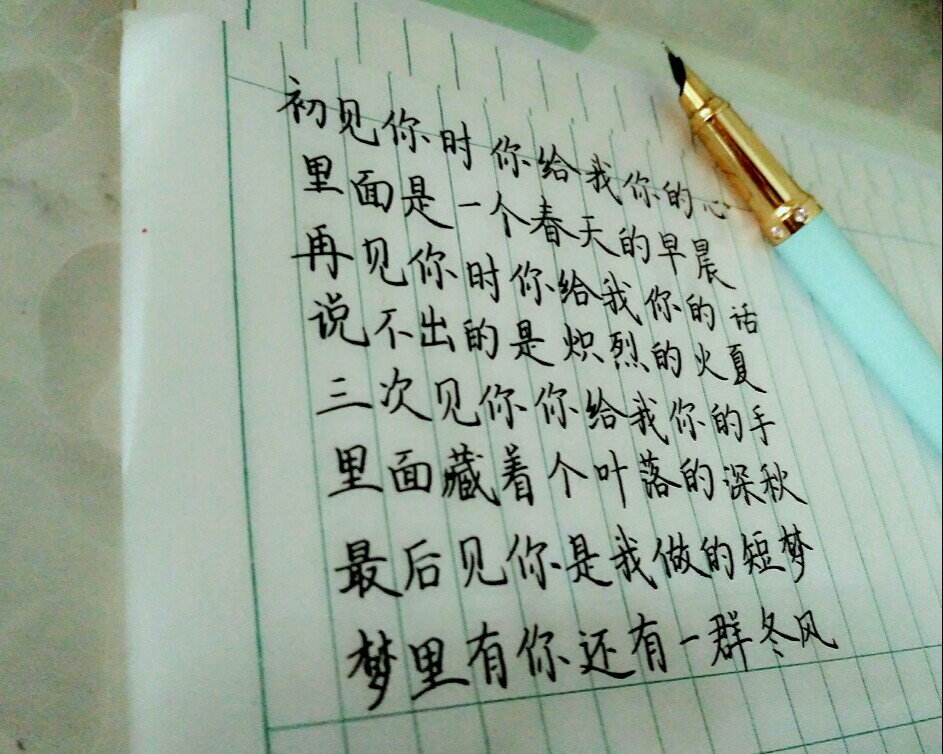 初见你时你给我你的心
里面是一个春天的早晨
再见你时你给我你的话
说不出的是炽烈的火夏
三次见你你给我你的手
里面藏着个叶落的深秋
最后见你是我做的短梦
梦里有你还有一群冬风